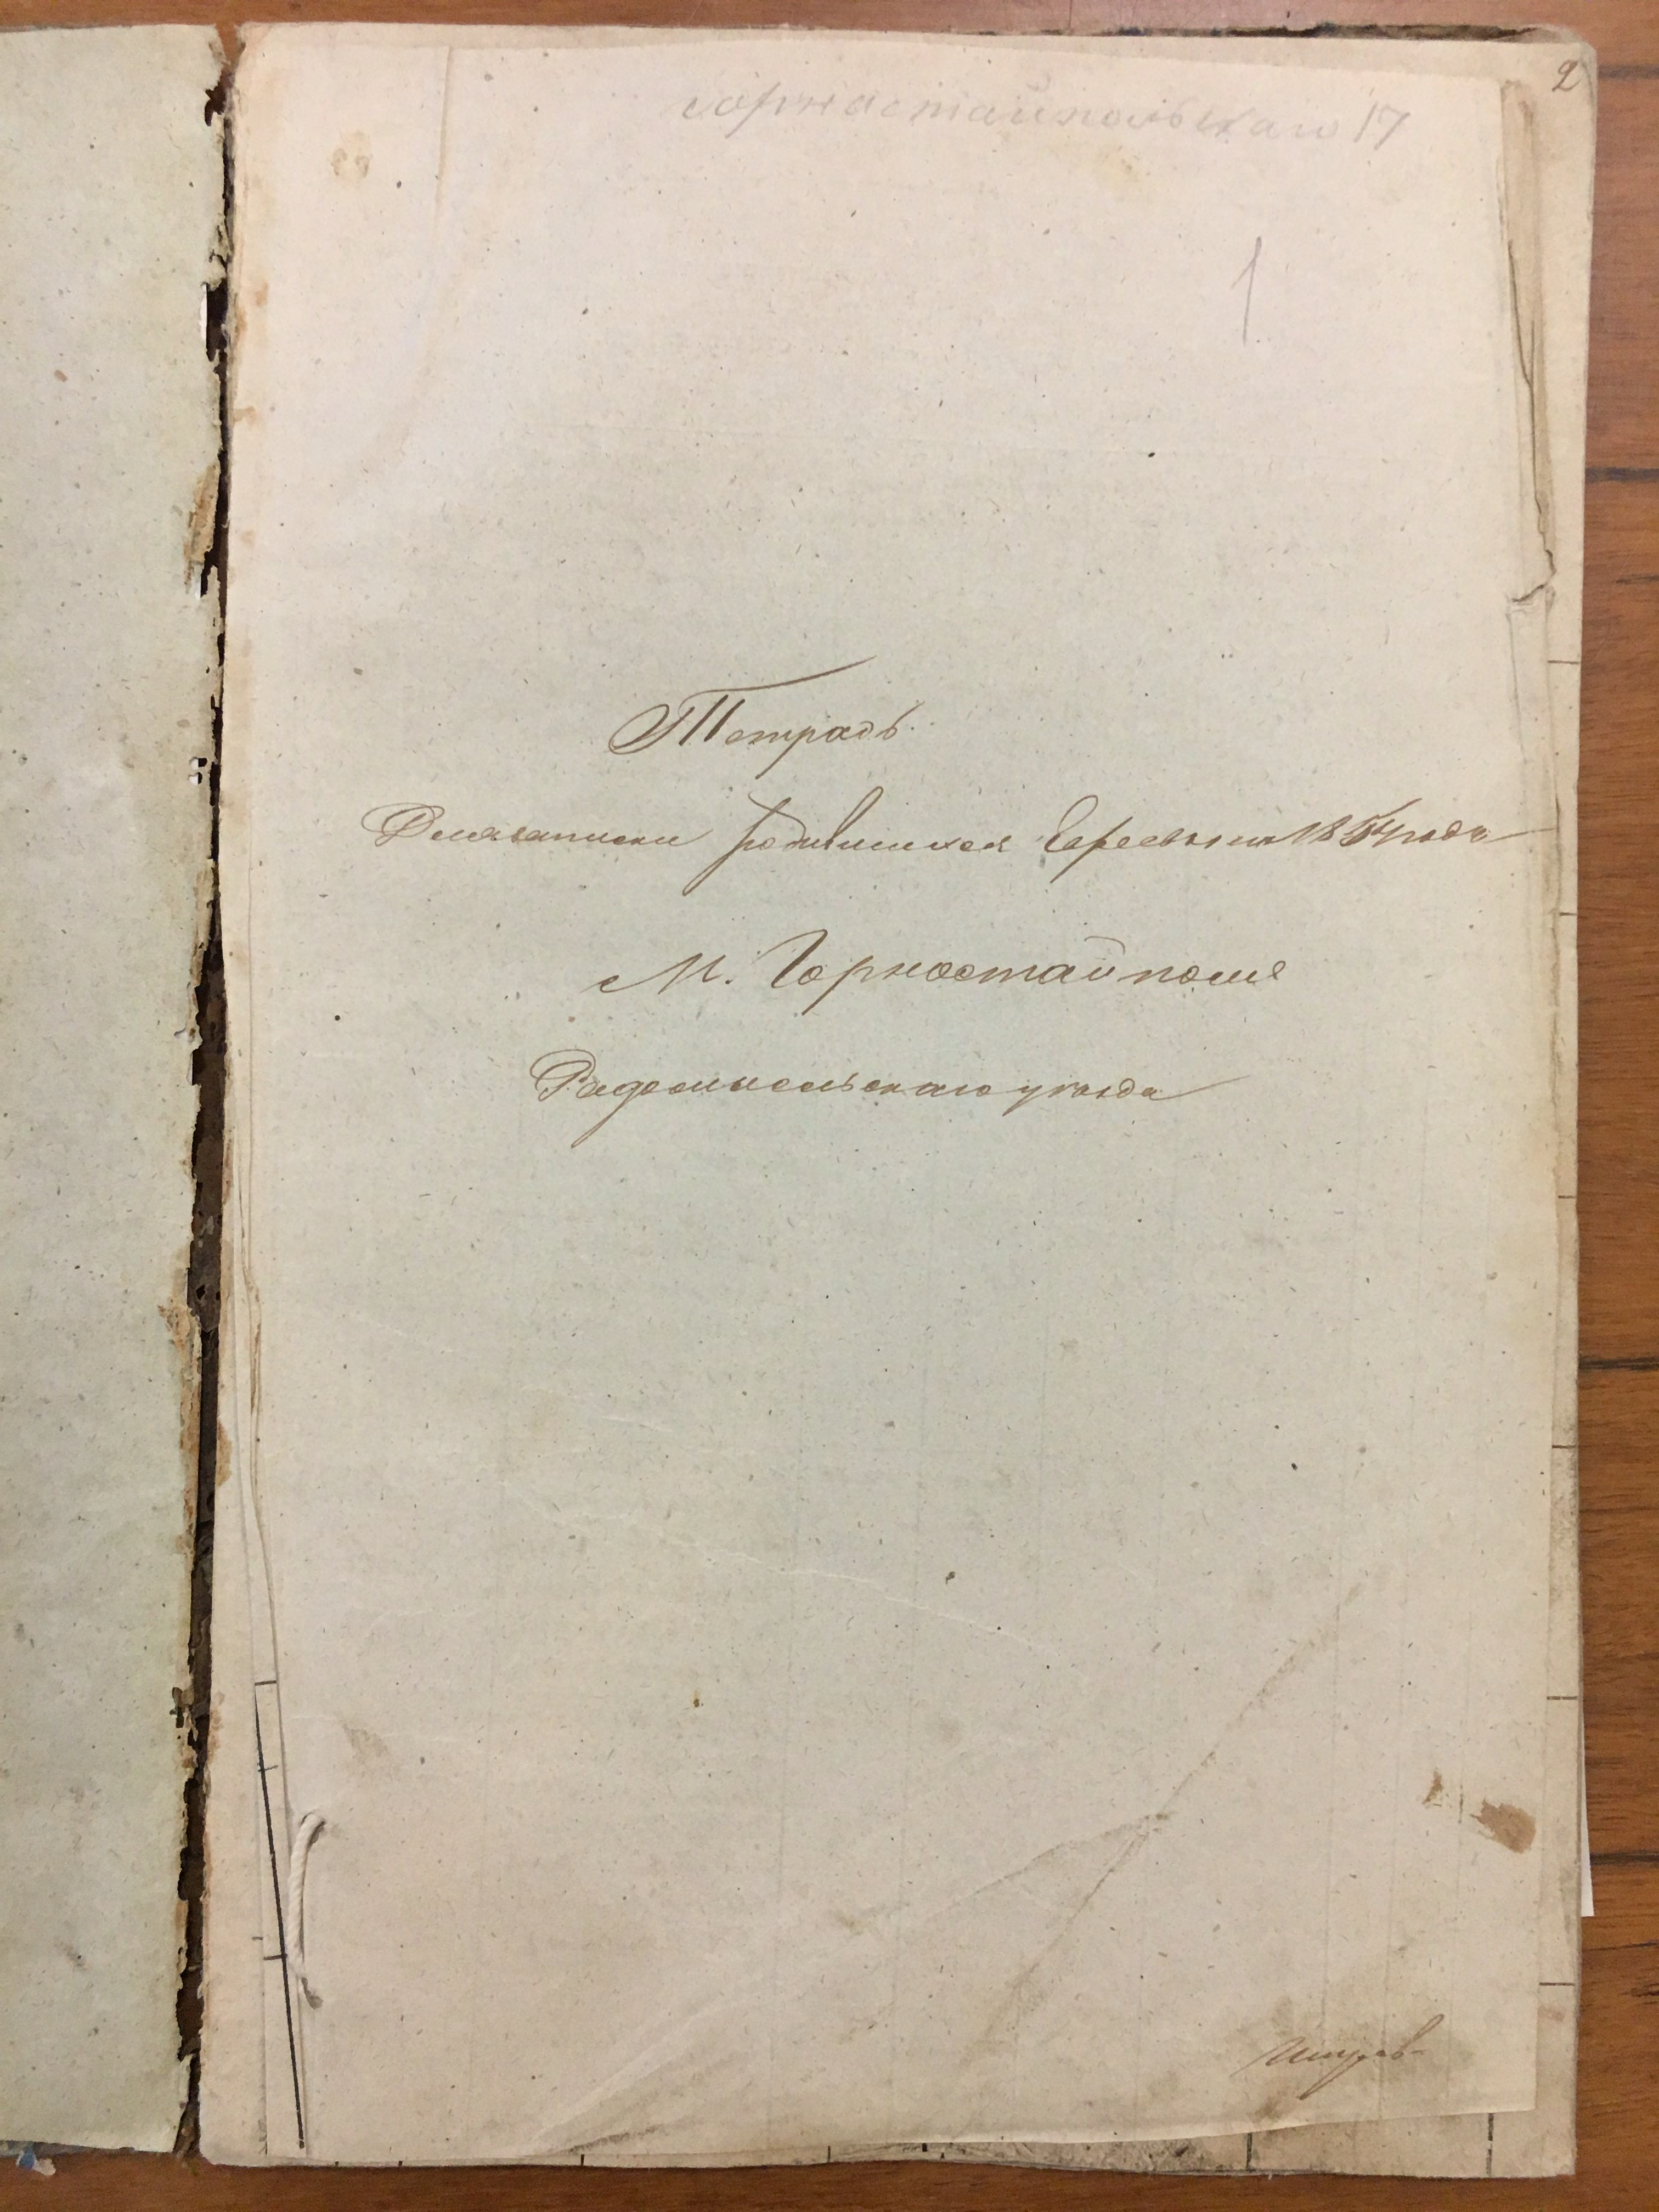 2
горностайпольскаго 17
1
Тетрадь
Для записки родившихся Евреевъ на 1854 года
М. Горностайполя
Радомысльскаго уезда